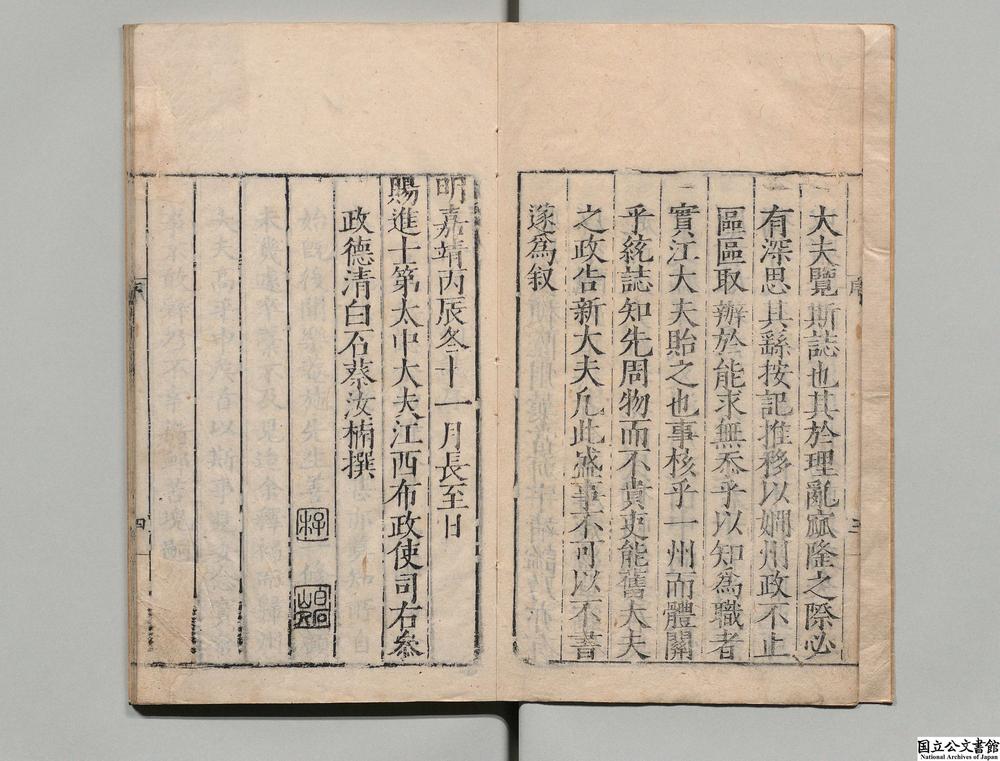 大夫覽斯誌也其於理亂窳隆之際必
有深思其繇按記推移以嫺州政不止
區區取辦於能求無忝乎以知為職者
實江大夫貽之也事核乎一州而體關
乎統誌知先周物而不貴吏能舊大夫
之政告新大夫凡此盛事不可以不書
遂為叙
明嘉靖丙辰冬十一月長至日
賜進士第太中大夫江西布政使司右叅
政德清白石蔡汝楠撰
序
三
序
四
国立公文書館
National Archives of Japan